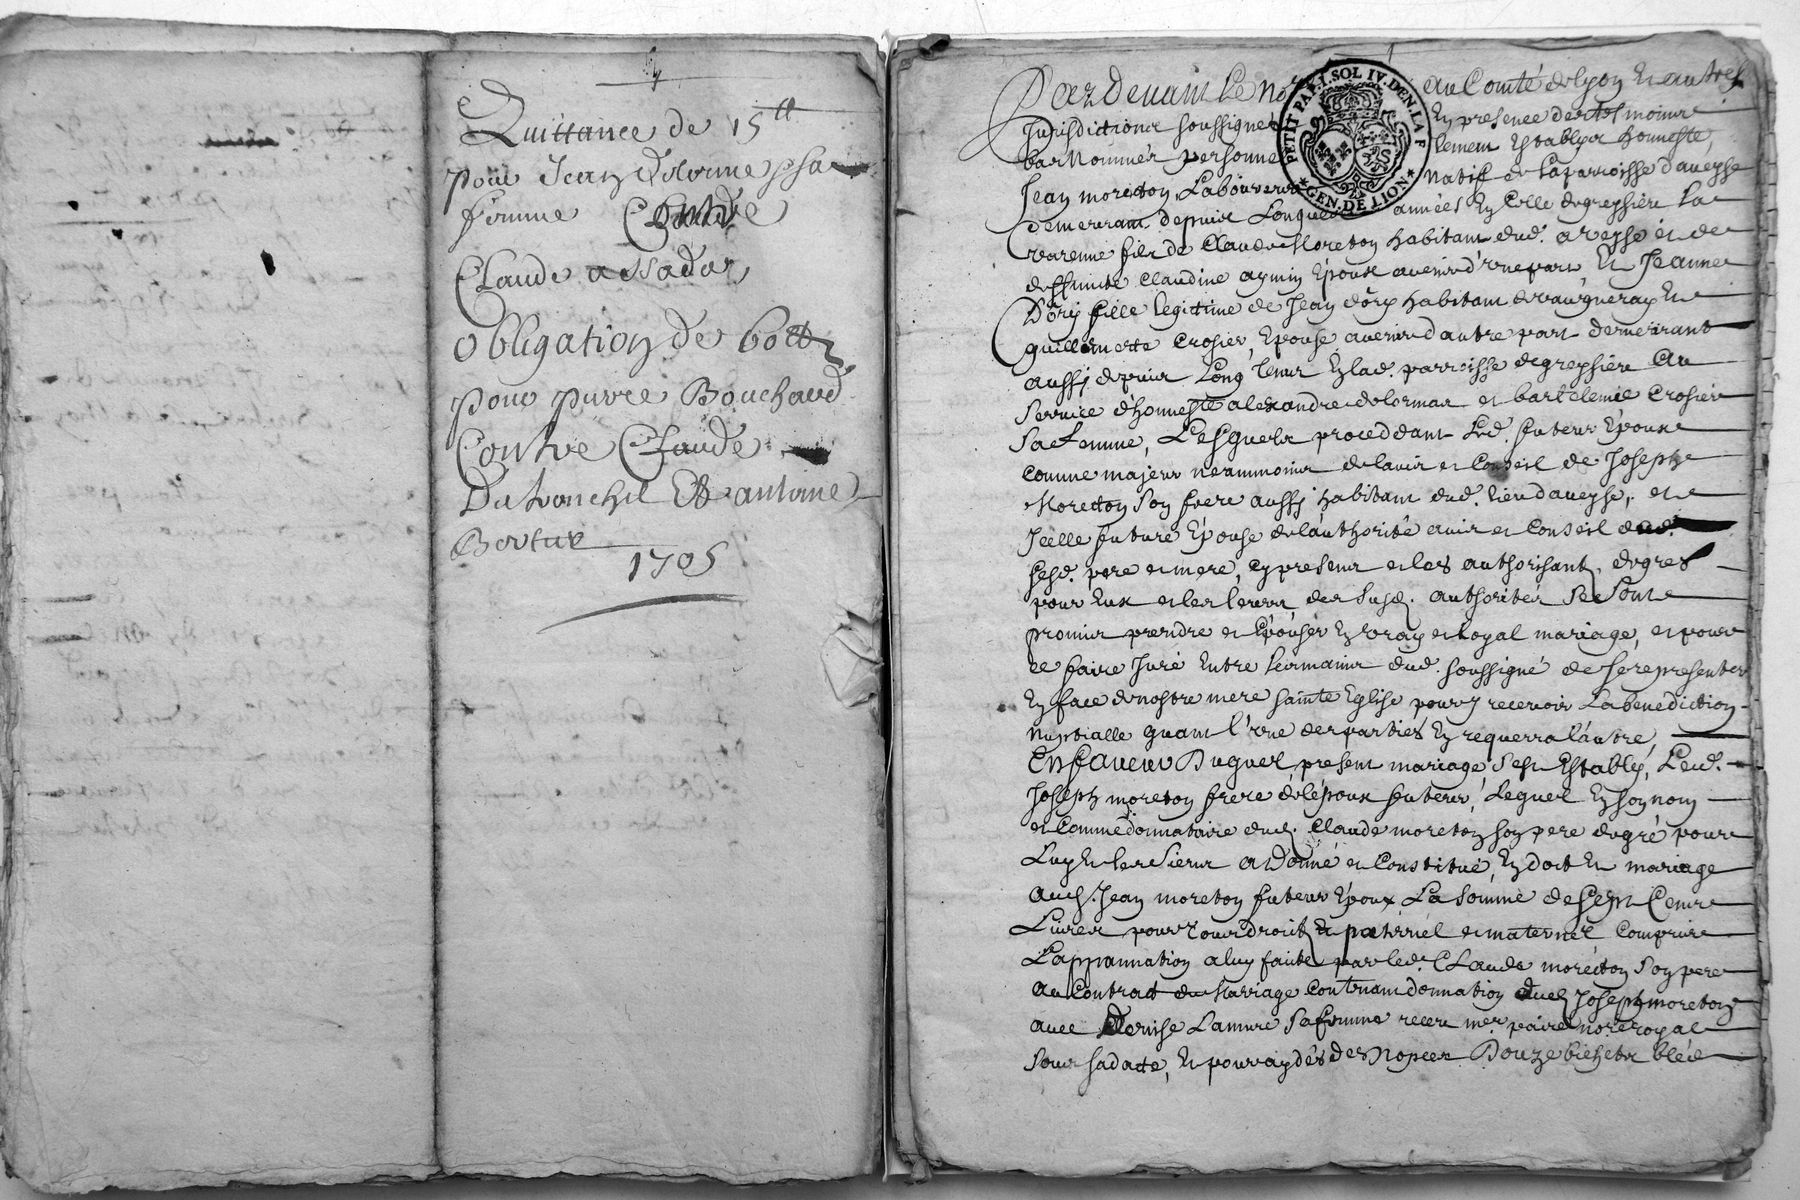 Quittance de 15ᵗᵗ
pour Jean Delorme
femme
Claude
obligation de 60ᵗᵗ
pour pierre Bouchard
Contre Claude
Dutronchil Et antoine
1705
Pardevant Le no au Comté de lyon Et autres
Jurisdictions soussigné En presence des tesmoins
bas Nommés personnellement Establys honneste
Jean moretton Laboureur natif de La parroisse daveyse
demeurant depuis Longues années En Celle de gressieu La
varenne fils de Claude Moretton habitant dud. aveyse et de
deffunte Claudine aymin Epoux avenir d'une part, Et Jeanne
D'ory fille legitime de Jean dory habitant de vaugneray Et
guillemette Crosier, Epouse avenir dautre part demeurant
aussj depuis Long temps En lad. parroisse de gressieu Au
service d'honneste alexandre delormas et bartelemie Crosier
Sa femme, Lesquels proceddant Led. futeur Epoux
Comme majeur neammoins de lavis et Conseil de Joseph
Moretton son frere aussj habitant dud. lieu daveyse, et
Jcelle future Epouse de l'authorité avis et Conseil dud.
sesd. pere et mere, cy presents et les authorisant, de gres
pour Eux et les leurs des susd. authorités Se Sont
promis prendre et Epouser En vray et Loyal mariage, et pour
ce faire Juré Entre les mains dud. soussigné de se representer
En face de nostre mere sainte Eglise pour y recevoir La benediction
nuptialle quant l'une des parties En requerra l'autre,
En faveur Duquel present mariage s'est Estably, Led.
Joseph moreton frere de l'époux futeur, Lequel En son nom
et Comme donnataire dud. Claude moreton son pere de gré pour
Luy Et les siens a Donné et Constitué, En dot Et mariage
aud. Jean moreton futeur Epoux La somme de sept Cents
Livres pour tous droits Et paternel et maternel Compris
L'appannation a luy faitte par led. Claude moretton son pere
au Contract de Mariage Contenant donnation dud. Joseph moreton
avec Denise Lamure Sa femme receu me paire no.re royal
Sous sa datte, Et pour aydés des Nopces Douze bichets bled
PETIT PAP. I. SOL IV. DEN. LA F
GEN. DE LION